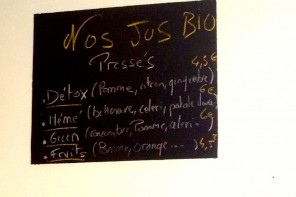 Nos JUS BIO
Pressés 4,5€
. Détox (Pomme, citron, gingembre)
6€
. Hémé (betterave, celeri, patate douce)
6€
. Green (concombre, Pomme, celeri..)
. Fruits (Pomme, orange ...) 4,5€